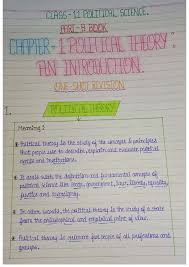 CLASS - 11 POLITICAL SCIENCE.
PART-B BOOK
CHAPTER - 1 POLITICAL THEORY:
AN INTRODUCTION.
ONE-SHOT REVISION
1.
POLITICAL THEORY
Meaning :
Political theory is the study of the concepts & principles
that people use to describe, explain and evaluate political
events and institutions.
It deals with the definition and fundamental concepts of
political science like state, government, law, liberty, equality,
justice and sovereignty.
In other words, the political theory is the study of a state
from the philosophical and empirical point of view.
Political theory is relevant for people of all professions and
groups.